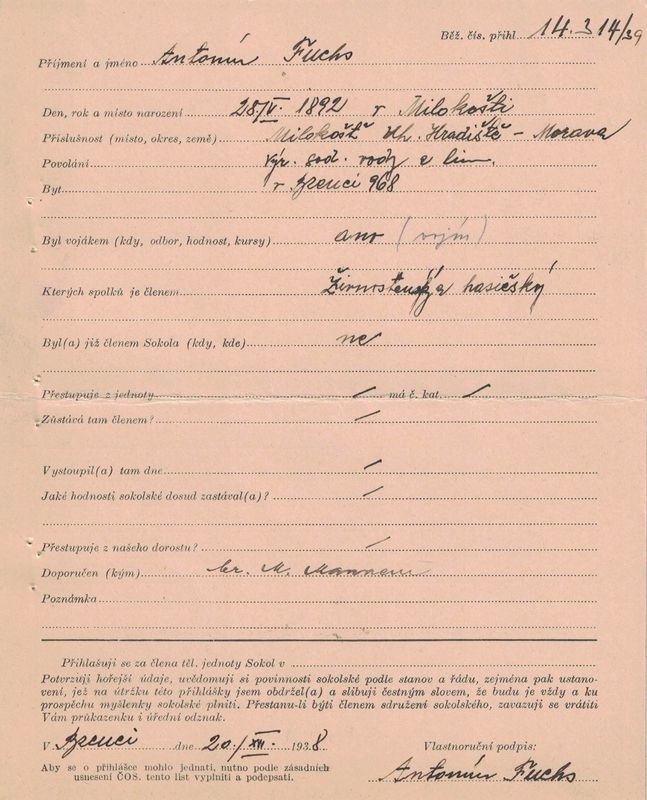 Běž. čís. přihl. 14.314/39
Příjmení a jméno Antonín Fuchs
Den, rok a místo narození 28/V. 1892 v Milokošti
Příslušnost (místo, okres, země) Milokošť Uh. Hradiště - Morava
Povolání výr. sod. vody a lim.
Byt v Bzenci 968
Byl vojákem (kdy, odbor, hodnost, kursy) ano (vojín)
Kterých spolků je členem Živnostenský a hasičský
Byl(a) již členem Sokola (kdy, kde) ne
Přestupuje z jednoty / má č. kat. /
Zůstává tam členem? /
Vystoupil(a) tam dne /
Jaké hodnosti sokolské dosud zastával(a)? /
Přestupuje z našeho dorostu? /
Doporučen (kým) br. M.
Poznámka
Přihlašuji se za člena těl. jednoty Sokol v
Potvrzuji hořejší údaje, uvědomuji si povinnosti sokolské podle stanov a řádu, zejména pak ustano-
vení, jež na útržku této přihlášky jsem obdržel(a) a slibuji čestným slovem, že budu je vždy a ku
prospěchu myšlenky sokolské plniti. Přestanu-li býti členem sdružení sokolského, zavazuji se vrátiti
Vám průkazenku i úřední odznak.
V Bzenci dne 20/XII. 1938
Vlastnoruční podpis:
Aby se o přihlášce mohlo jednati, nutno podle zásadních
usnesení ČOS. tento list vyplniti a podepsati.
Antonín Fuchs